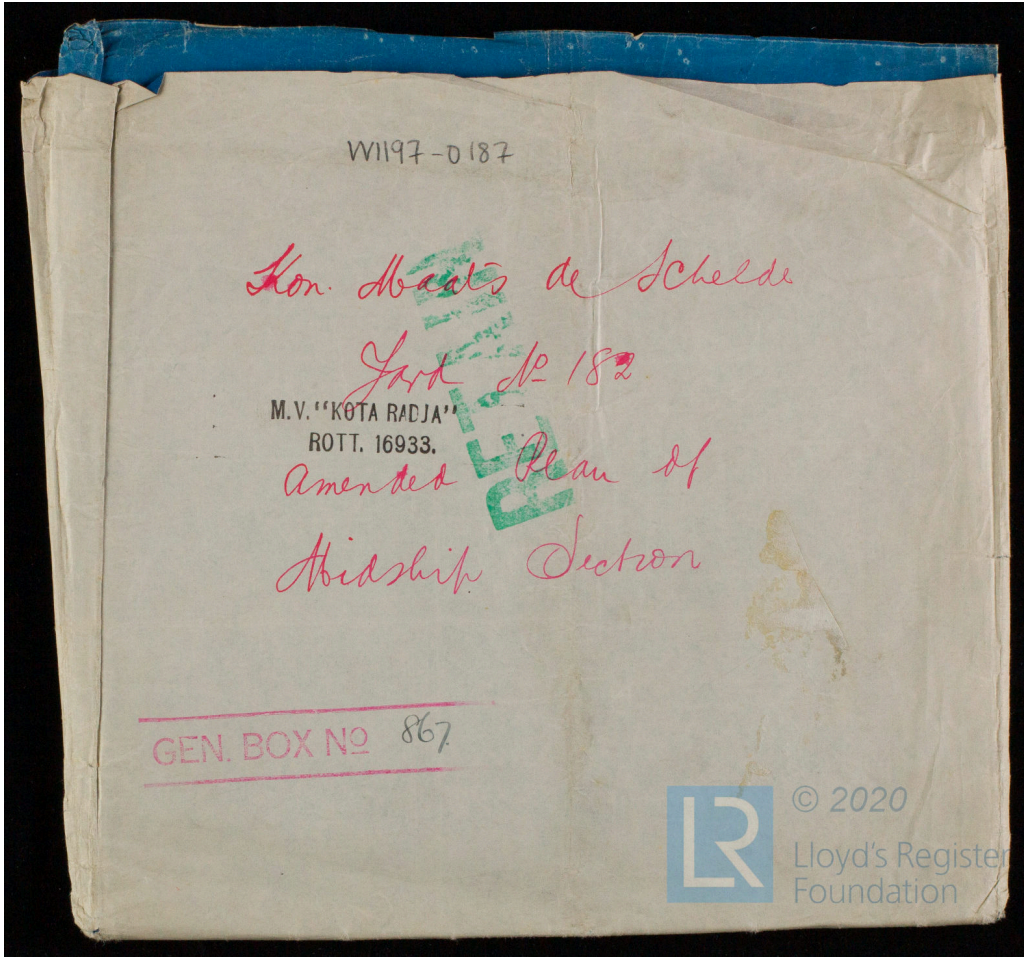 W1197-0187
Kon. Maats de Schelde
Yard No 182
M.V. "KOTA RADJA"
ROTT. 16933.
RETAIN
Amended Plan of
Midship Section
GEN. BOX No 867.
LR
© 2020
Lloyd's Register
Foundation